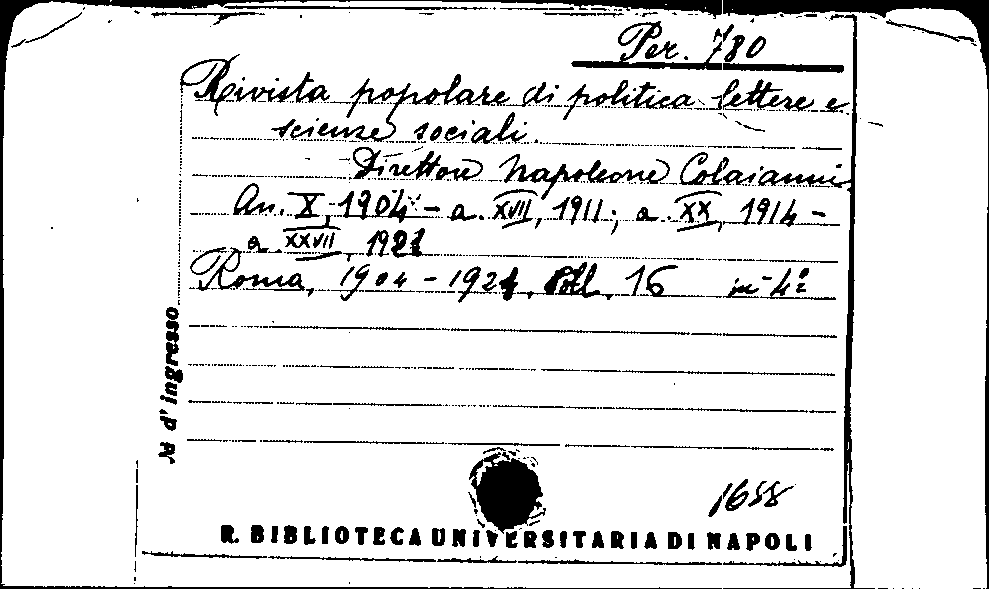 Per. 780
Rivista popolare di politica lettere e
scienze sociali.
Direttore Napoleone Colaianni.
An. X, 1904 - a. XVII, 1911; a. XX, 1914 -
a XXVII, 1921
Roma, 1904 - 1921, 16 in-4º
№ d'ingresso
1688
R. BIBLIOTECA UNIVERSITARIA DI NAPOLI